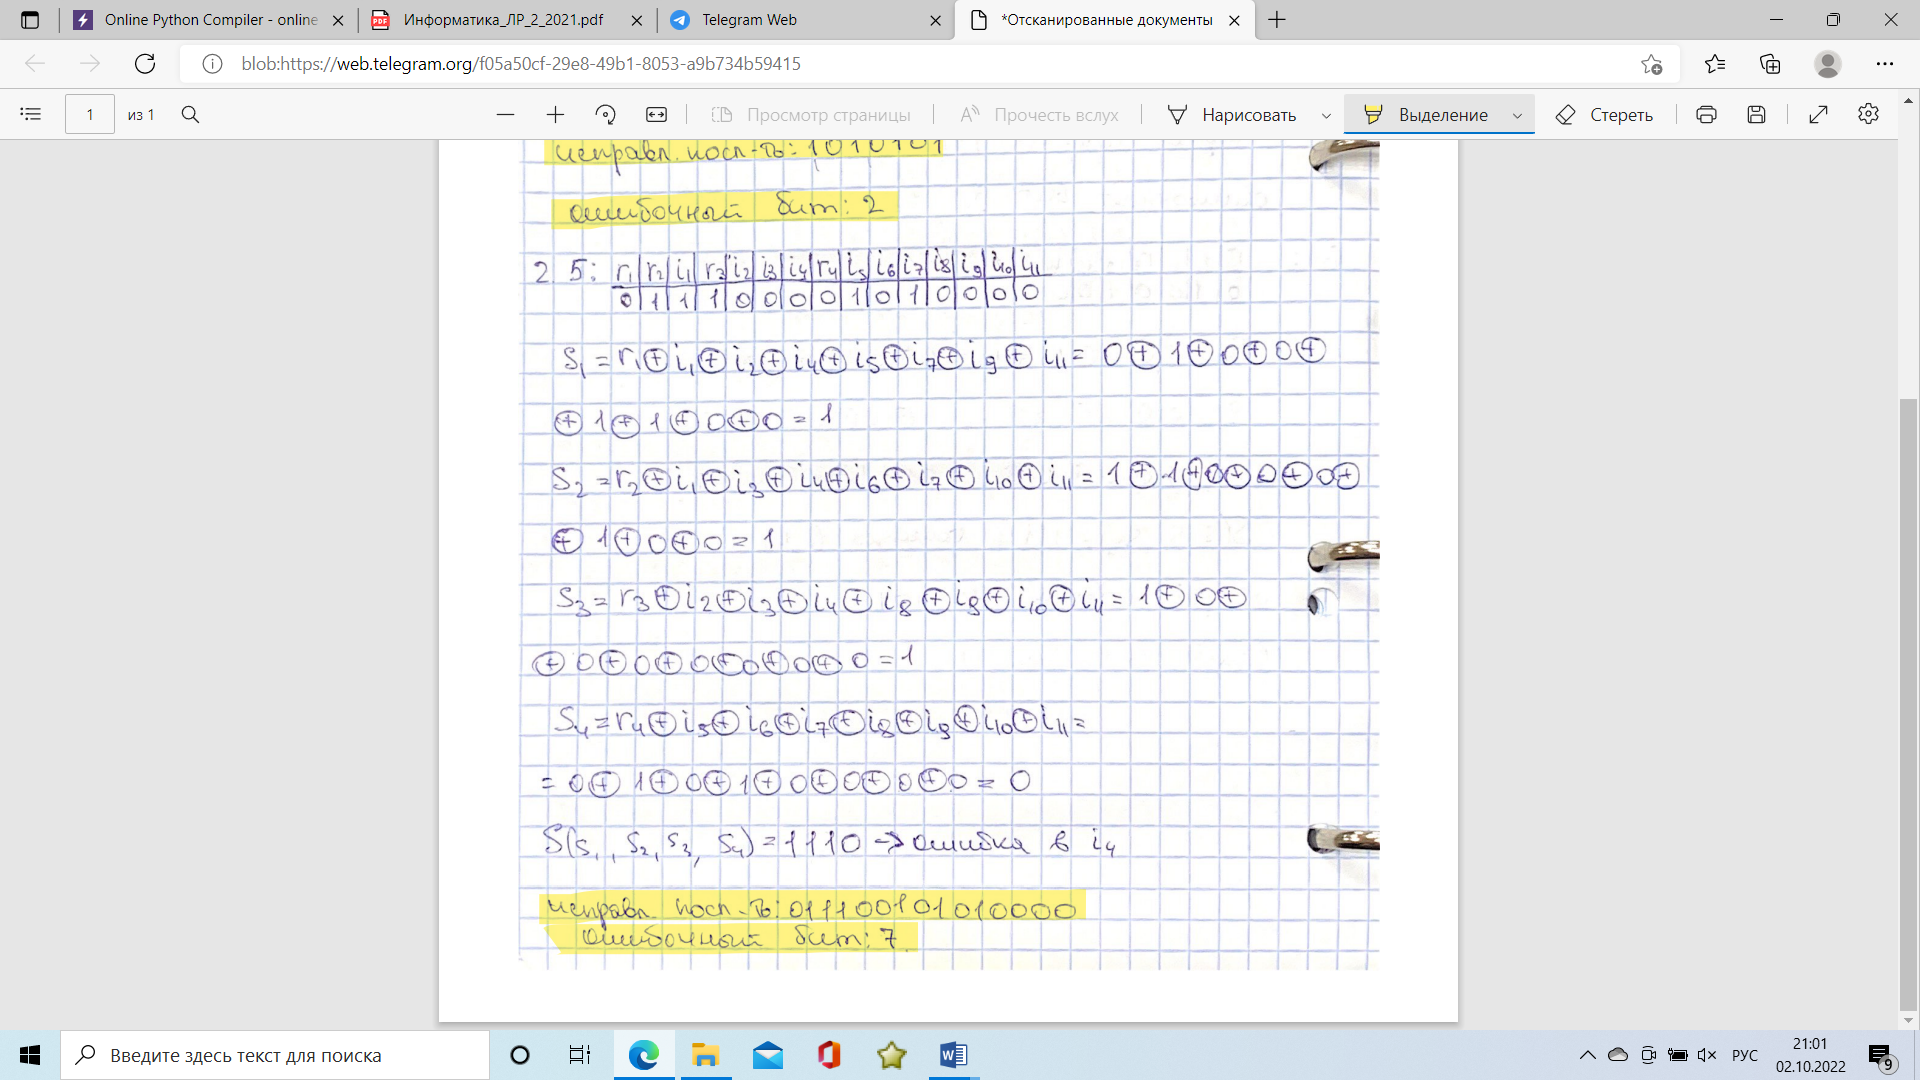 Online Python Compiler - online
Информатика_ЛР_2_2021.pdf
Telegram Web
*Отсканированные документы
blob:https://web.telegram.org/f05a50cf-29e8-49b1-8053-a9b734b59415
1 из 1
Просмотр страницы
Прочесть вслух
Нарисовать
Выделение
Стереть
исправл. посл-ть: 1010101
ошибочный бит: 2
2 5: r₁ | r₂ | i₁ | r₃ | i₂ | i₃ | i₄ | r₄ | i₅ | i₆ | i₇ | i₈ | i₉ | i₁₀ | i₁₁
0 | 1 | 1 | 1 | 0 | 0 | 0 | 0 | 1 | 0 | 1 | 0 | 0 | 0 | 0
S₁ = r₁ ⊕ i₁ ⊕ i₂ ⊕ i₄ ⊕ i₅ ⊕ i₇ ⊕ i₉ ⊕ i₁₁ = 0 ⊕ 1 ⊕ 0 ⊕ 0 ⊕
⊕ 1 ⊕ 1 ⊕ 0 ⊕ 0 = 1
S₂ = r₂ ⊕ i₁ ⊕ i₃ ⊕ i₄ ⊕ i₆ ⊕ i₇ ⊕ i₁₀ ⊕ i₁₁ = 1 ⊕ 1 ⊕ 0 ⊕ 0 ⊕ 0 ⊕
⊕ 1 ⊕ 0 ⊕ 0 = 1
S₃ = r₃ ⊕ i₂ ⊕ i₃ ⊕ i₄ ⊕ i₈ ⊕ i₉ ⊕ i₁₀ ⊕ i₁₁ = 1 ⊕ 0 ⊕
⊕ 0 ⊕ 0 ⊕ 0 ⊕ 0 ⊕ 0 ⊕ 0 = 1
S₄ = r₄ ⊕ i₅ ⊕ i₆ ⊕ i₇ ⊕ i₈ ⊕ i₉ ⊕ i₁₀ ⊕ i₁₁ =
= 0 ⊕ 1 ⊕ 0 ⊕ 1 ⊕ 0 ⊕ 0 ⊕ 0 ⊕ 0 = 0
S(s₁, s₂, s₃, s₄) = 1110 → ошибка в i₄
исправл. посл-ть: 011100101010000
ошибочный бит: 7
Введите здесь текст для поиска
РУС
21:01
02.10.2022
9